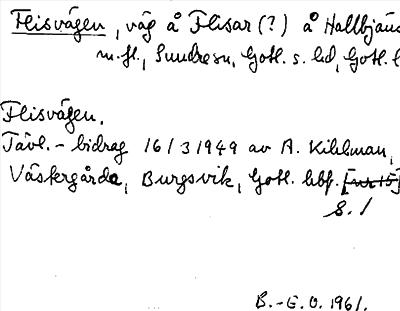 Flisvägen, väg å Flisar (?) å Hallbjäns
m.fl., Sundre sn, Gotl. s. hd, Gotl. l
Flisvägen.
Tävl.-bidrag 16/3 1949 av A. Kihlman,
Västergårda, Burgsvik, Gotl. hbf. [nr 15]
S. 1
B.-E. O. 1961.